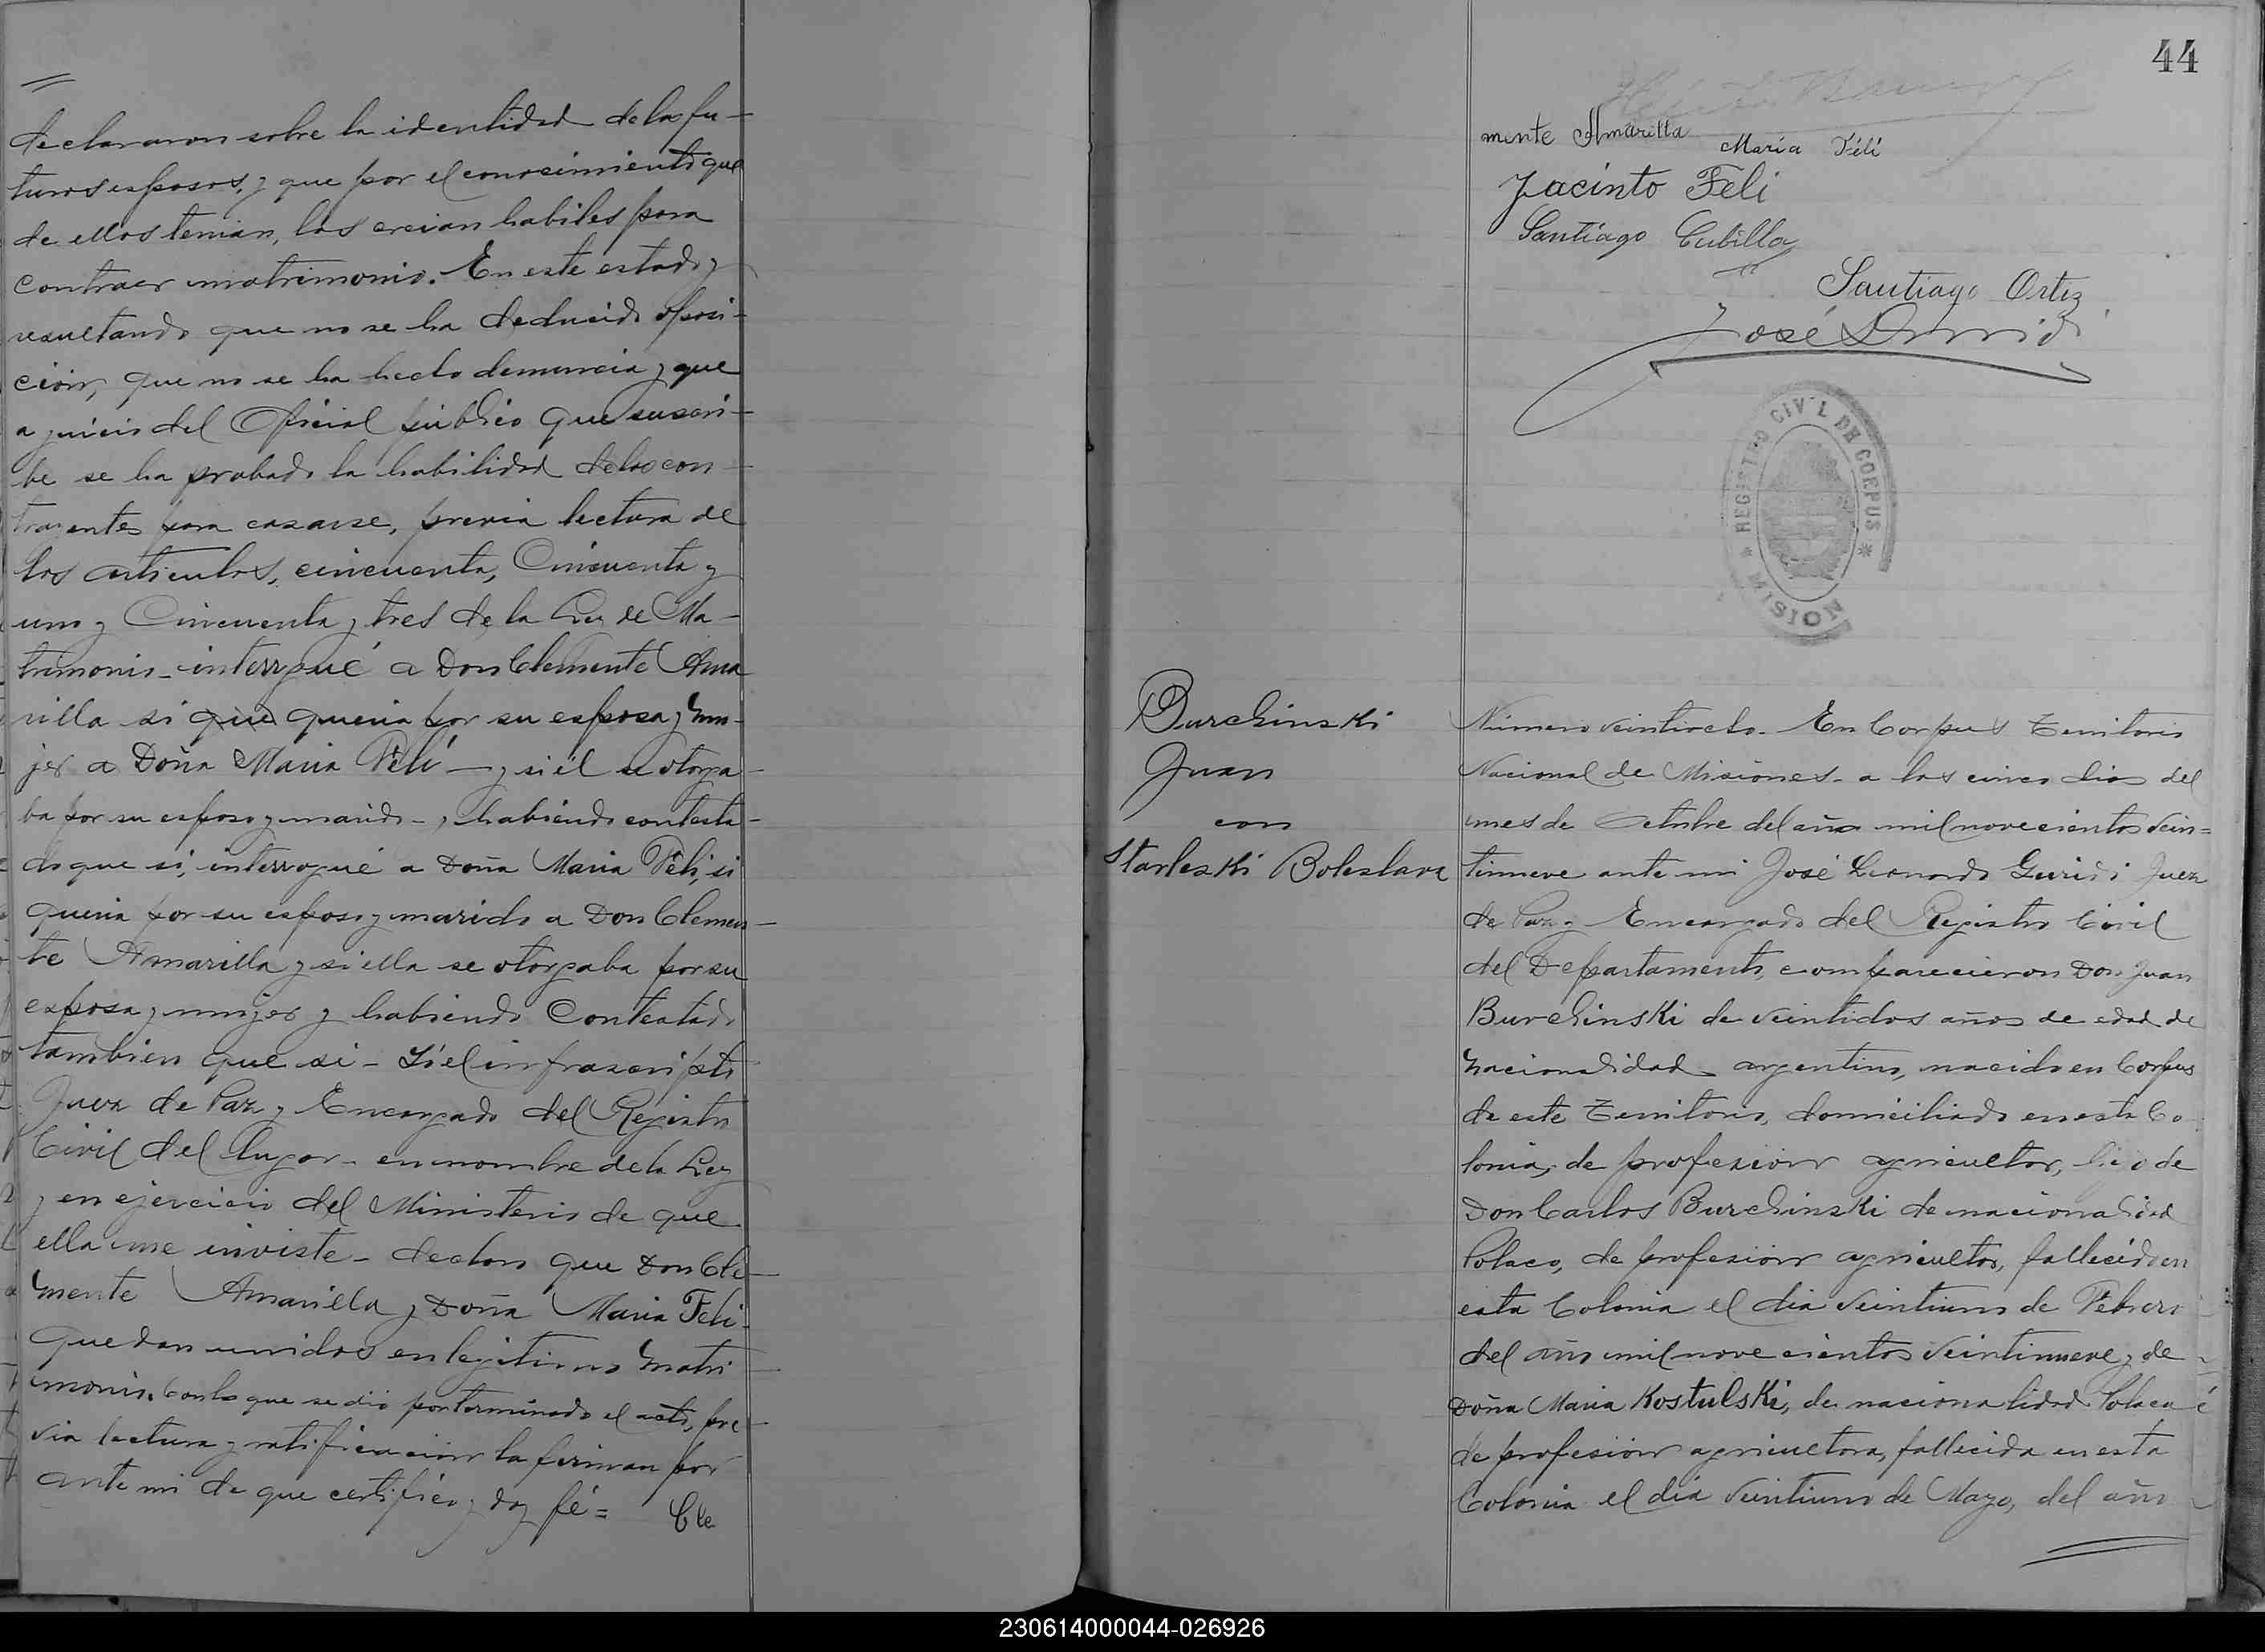 declararon sobre la identidad de los fu-
turos esposos, y que por el conocimiento que
de ellos tenian, los creian habiles para
contraer matrimonio. En este estado y
resultando que no se ha deducido oposi-
cion, que no se ha hecho denuncia y que
a juicio del Oficial público que suscri-
be se ha probado la habilidad de los con-
trayentes para casarse, previa lectura de
los articulos, cincuenta, Cincuenta y
uno y Cincuenta y tres de la Ley de Ma-
trimonio - interrgué a Don Clemente Ama
rilla si que queria por su esposa y mu-
jer a Doña Maria Féli — y si él se otorga-
ba por su esposo y marido -, habiendo contesta-
do que si, interrogué a Doña Maria Féli, si
queria por su esposo y marido a Don Clemen-
te Amarilla y si ella se otorgaba por su
esposa y mujer y habiendo Contestado
tambien que si - Yó el infrascripto
Juez de Paz y Encargado del Registro
Civil del lugar - en nombre de la Ley
y en ejercicio del Ministerio de que
ella me inviste - declaro que Don Cle-
mente Amarilla y Doña Maria Feli-
quedan unidos en legitimo matri
monio. Con lo que se dió por terminado el acto, pre-
via lectura y ratificacion la firman por
ante mi de que certifico y doy fé = Cle
44
mente Amarilla
María Féli
Jacinto Feli
Santiago Cubilla
Santiago Ortiz
REGISTRO CIVIL DE CORPUS
* MISIONES *
Burchinski
Juan
con
Starleski Boleslava
Número veintiocho - En Corpus Territorio
Nacional de Misiones - a los cinco dias del
mes de Octubre del año mil novecientos vein=
tinueve ante mi José Leonardo Guridi Juez
de Paz y Encargado del Registro Civil
del Departamento, comparecieron Don Juan
Burchinski de veintidos años de edad de
nacionalidad - argentino, nacido en Corpus
de este Territorio, domiciliado en esta Co-
lonia, de profesion agricultor, hijo de
Don Carlos Burchinski de nacionalidad
Polaco, de profesion agricultor, fallecido en
esta Colonia el dia veintiuno de Febrero
del año mil novecientos veintinueve, y de
Doña Maria Kostulski, de nacionalidad Polaca
de profesion agricultora, fallecida en esta
Colonia el dia veintiuno de Mayo, del año
230614000044-026926